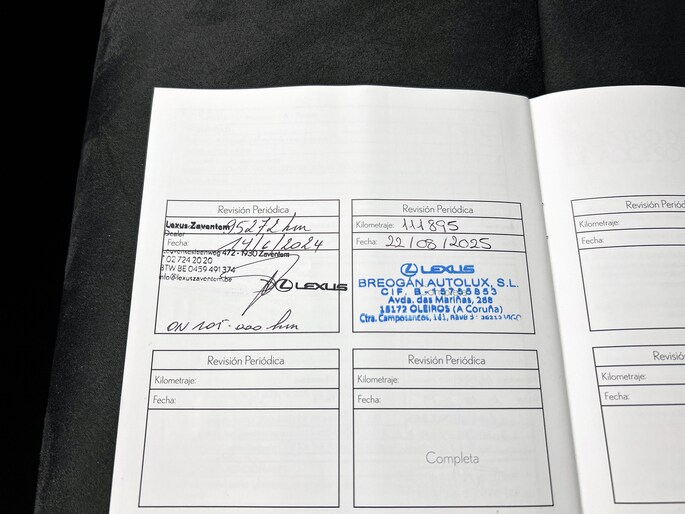 Revisión Periódica
Lexus Zaventem 95272 km
Dealer
Fecha: 14/6/2024
Leuvensesteenweg 472 - 1930 Zaventem
T 02 724 20 20
BTW BE 0459 491 374
info@lexuszaventem.be
LEXUS
ON 105-000 km
Revisión Periódica
Kilometraje: 111895
Fecha: 22/08/2025
LEXUS
BREOGÁN AUTOLUX, S.L.
Avda. das Mariñas, 288
15172 OLEIROS (A Coruña)
Ctra. Camposancos, 141, 36213 VIGO
Revisión Periódica
Kilometraje:
Fecha:
Revisión Periódica
Kilometraje:
Fecha:
Completa
Kilometraje:
Fecha:
Kilometraje:
Fecha: